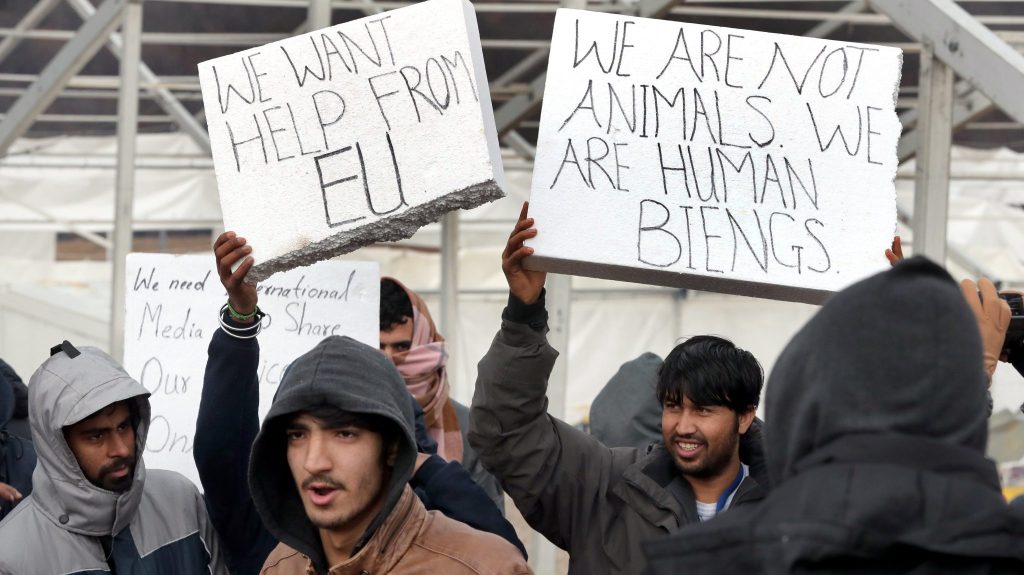 WE WANT
HELP FROM
EU
WE ARE NOT
ANIMALS. WE
ARE HUMAN
BIENGS.
We need
Media Share
Our